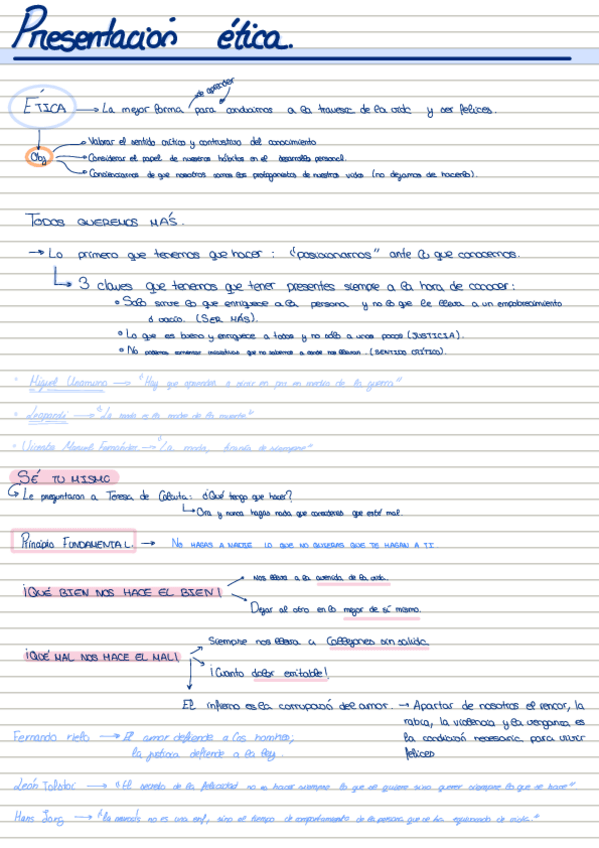 Presentación ética.
de aprender
ÉTICA → La mejor forma para conducirnos a la travesía de la vida y ser felices.
Obj
Valorar el sentido crítico y contrastivo del conocimiento
Considerar el papel de nuestros hábitos en el desarrollo personal.
Concienciarnos de que nosotros somos los protagonistas de nuestras vidas (no dejamos de hacerlo).
TODOS QUEREMOS MÁS.
→ Lo primero que tenemos que hacer: "posicionarnos" ante lo que conocemos.
3 claves que tenemos que tener presentes siempre a la hora de conocer:
• Solo sirve lo que enriquece a la persona y no lo que le lleva a un empobrecimiento
o vacío. (SER MÁS).
• Lo que es bueno y enriquece a todos y no sólo a unos pocos (JUSTICIA).
• No podemos comenzar iniciativas que no sabemos a donde nos llevaran. (SENTIDO CRÍTICO).
• Miguel Unamuno → "Hay que aprender a vivir en paz en medio de la guerra"
• Leopardi → "La moda es la madre de la muerte"
• Vicente Manuel Fernández → "La moda, tirania de siempre"
SÉ TU MISMO
Le preguntaron a Teresa de Calcuta: ¿Qué tengo que hacer?
Ora y nunca hagas nada que consideres que esté mal.
Principio FUNDAMENTAL. → NO HAGAS A NADIE LO QUE NO QUIERAS QUE TE HAGAN A TI.
¡QUÉ BIEN NOS HACE EL BIEN!
Nos lleva a la avenida de la vida.
Dejar al otro en lo mejor de sí mismo.
¡QUÉ MAL NOS HACE EL MAL!
Siempre nos llevara a callejones sin salida.
¡Cuanto dolor evitable!
El infierno es la corrupció del amor. → Apartar de nosotros el rencor, la
rabia, la violencia y la venganza es
la condición necesaria para vivir
felices
Fernando rielo → El amor defiende a los hombres;
la justicia defiende a la ley.
León Tolstoi → "El secreto de la felicidad no es hacer siempre lo que se quiere sino querer siempre lo que se hace".
Hans Jorg → "la no es una enf, sino el tiempo de comportamiento de la persona que se ha equivocado de"